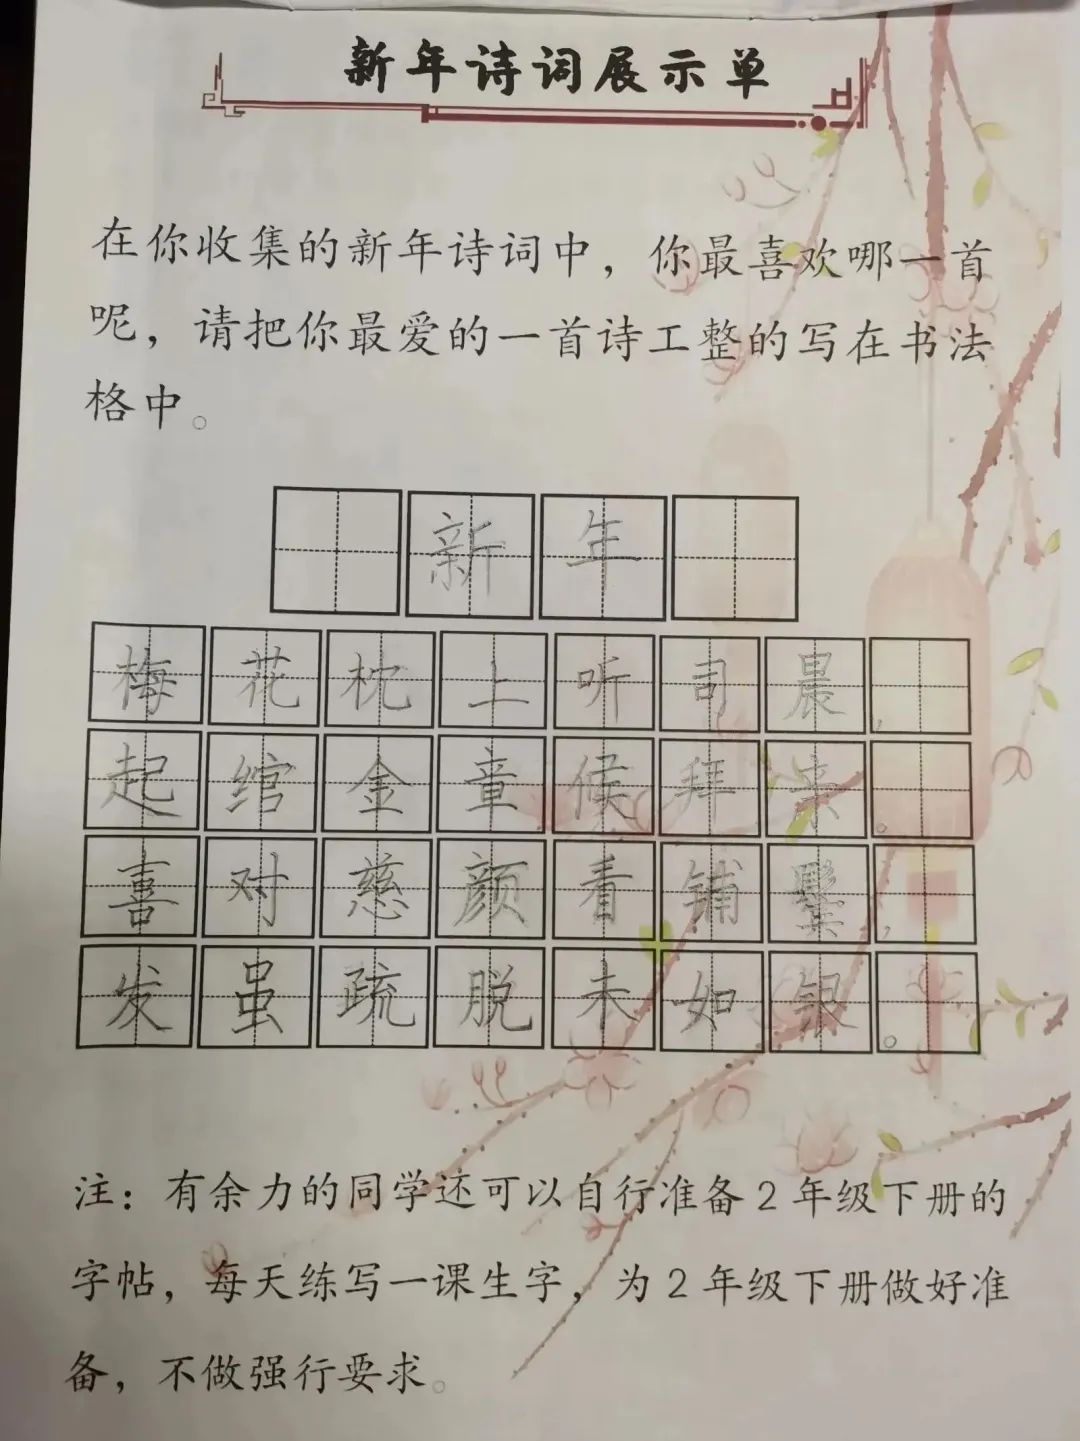 新年诗词展示单
在你收集的新年诗词中，你最喜欢哪一首
呢，请把你最爱的一首诗工整的写在书法
格中。
新年
梅花枕上听司晨，
起绾金章候拜亲。
喜对慈颜看铺鬓，
发虽疏脱未如银。
注：有余力的同学还可以自行准备2年级下册的
字帖，每天练写一课生字，为2年级下册做好准
备，不做强行要求。